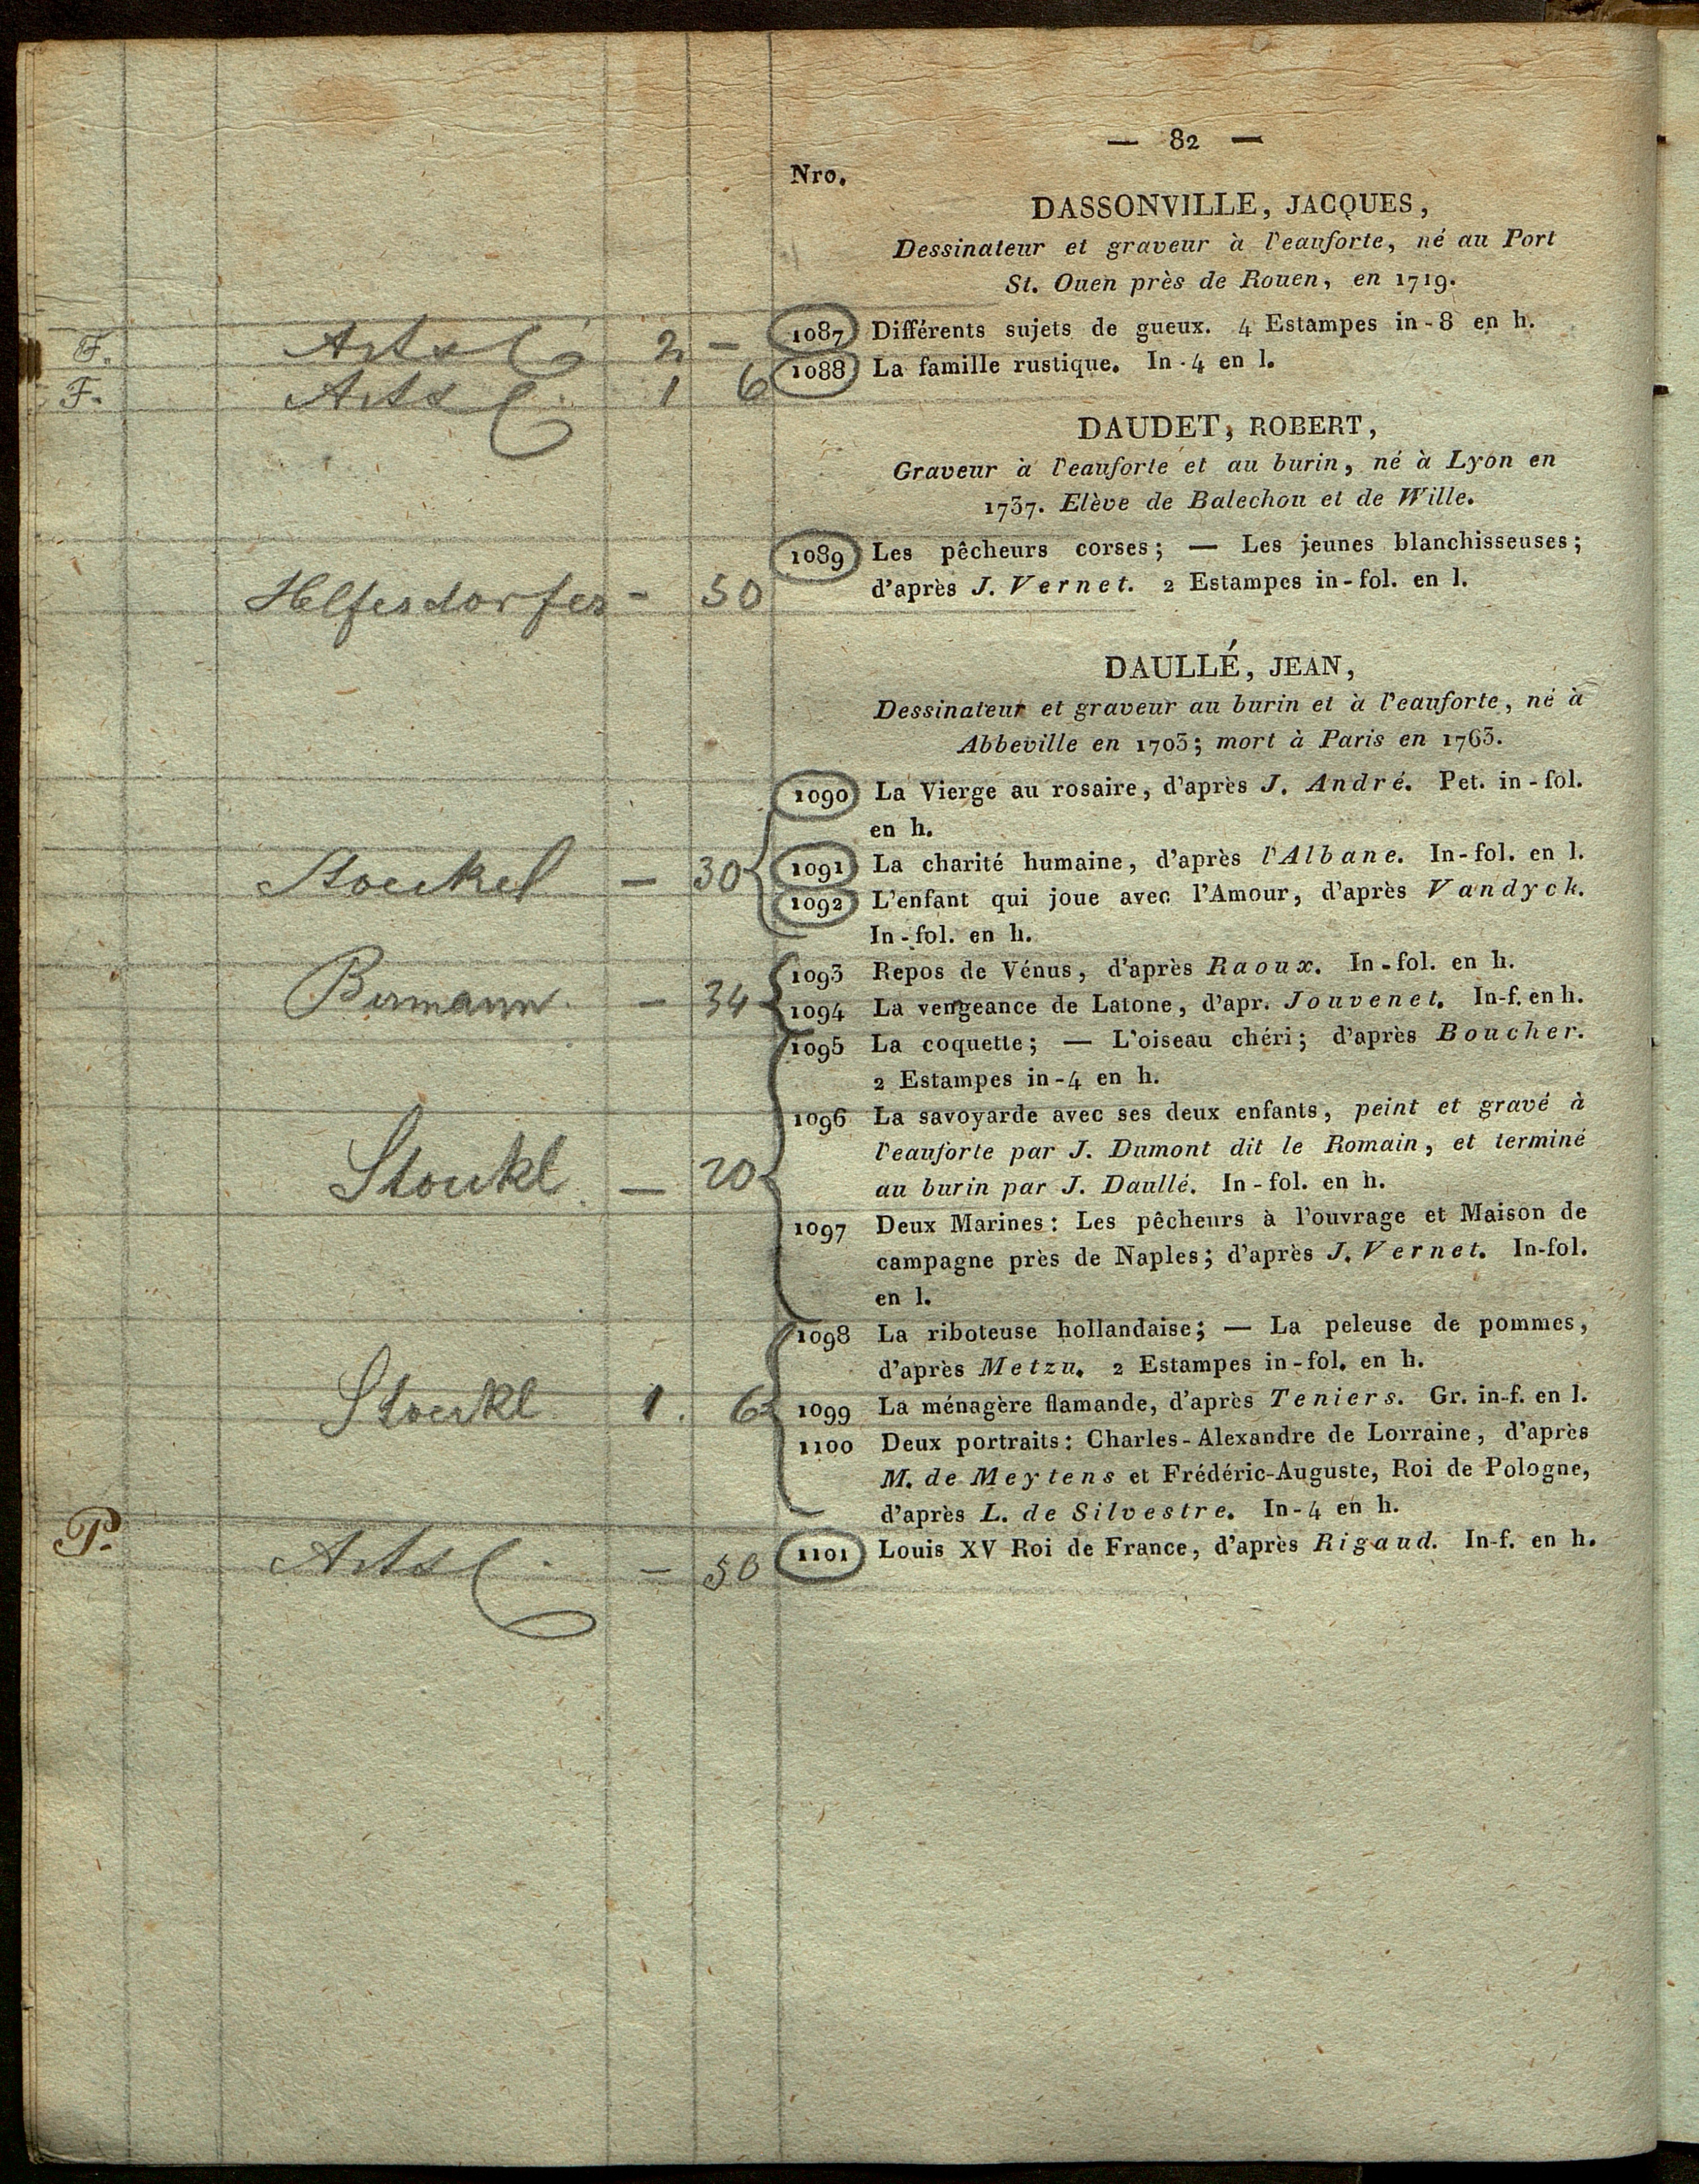 — 82 —
Nro.
DASSONVILLE, JACQUES,
Dessinateur et graveur à l'eauforte, né au Port
St. Ouen près de Rouen, en 1719.
F. 2 — 1087 Différents sujets de gueux. 4 Estampes in-8 en h.
F. 1 6 1088 La famille rustique. In-4 en l.
DAUDET, ROBERT,
Graveur à l'eauforte et au burin, né à Lyon en
1737. Elève de Balechou et de Wille.
1089 Les pêcheurs corses; — Les jeunes blanchisseuses;
Helfesdorfer - 50 d'après J. Vernet. 2 Estampes in-fol. en l.
DAULLÉ, JEAN,
Dessinateur et graveur au burin et à l'eauforte, né à
Abbeville en 1703; mort à Paris en 1763.
1090 La Vierge au rosaire, d'après J. André. Pet. in-fol.
en h.
Stoeckel — 30 1091 La charité humaine, d'après l'Albane. In-fol. en l.
1092 L'enfant qui joue avec l'Amour, d'après Vandyck.
In-fol. en h.
1093 Repos de Vénus, d'après Raoux. In-fol. en h.
Bermann. — 34 1094 La vengeance de Latone, d'apr. Jouvenet. In-f. en h.
1095 La coquette; — L'oiseau chéri; d'après Boucher.
2 Estampes in-4 en h.
1096 La savoyarde avec ses deux enfants, peint et gravé à
l'eauforte par J. Dumont dit le Romain, et terminé
Stoeckl. — 20 au burin par J. Daullé. In-fol. en h.
1097 Deux Marines: Les pêcheurs à l'ouvrage et Maison de
campagne près de Naples; d'après J. Vernet. In-fol.
en l.
1098 La riboteuse hollandaise; — La peleuse de pommes,
d'après Metzu. 2 Estampes in-fol. en h.
Stoeckl 1. 6 1099 La ménagère flamande, d'après Teniers. Gr. in-f. en l.
1100 Deux portraits: Charles-Alexandre de Lorraine, d'après
M. de Meytens et Frédéric-Auguste, Roi de Pologne,
d'après L. de Silvestre. In-4 en h.
P. — 50 1101 Louis XV Roi de France, d'après Rigaud. In-f. en h.